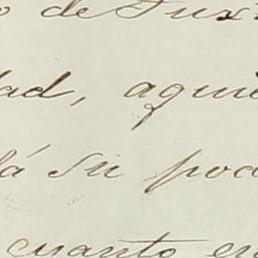 o de Tux
dad, aqui
lá su pod
cuanto en